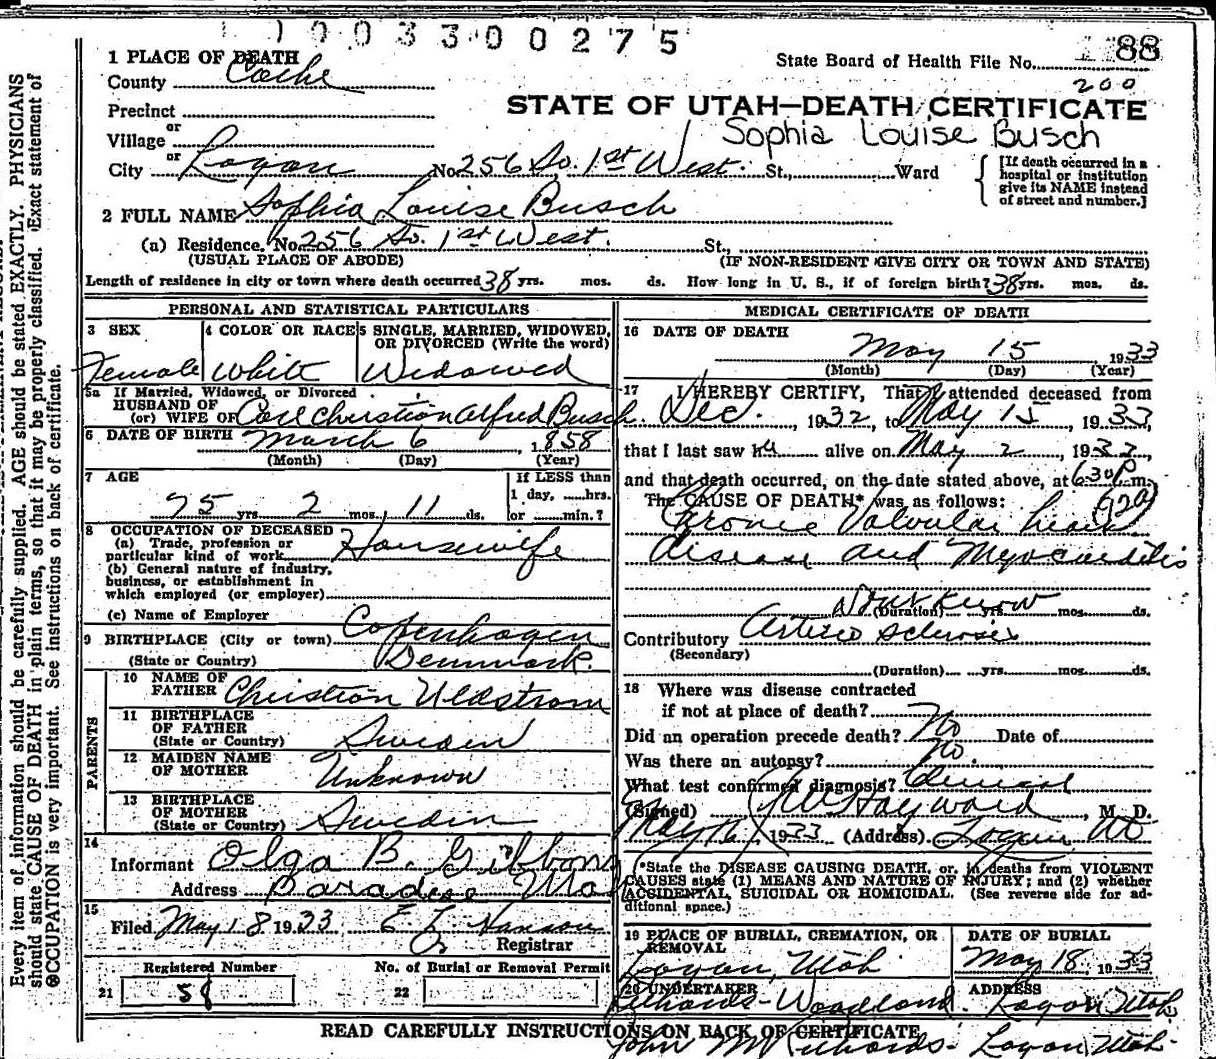 1003300275
88
State Board of Health File No.
200
1 PLACE OF DEATH
County Cache
STATE OF UTAH—DEATH CERTIFICATE
Precinct
or
Village
Sophia Louise Busch
or
City Logan No. 256 So. 1st West. St., Ward
[If death occurred in a hospital or institution give its NAME instead of street and number.]
2 FULL NAME Sophia Louise Busch
(a) Residence. No. 256 So. 1st West. St.,
(USUAL PLACE OF ABODE) (IF NON-RESIDENT GIVE CITY OR TOWN AND STATE)
Length of residence in city or town where death occurred 38 yrs. mos. ds. How long in U. S., if of foreign birth? 38 yrs. mos. ds.
PERSONAL AND STATISTICAL PARTICULARS
3 SEX 4 COLOR OR RACE 5 SINGLE, MARRIED, WIDOWED, OR DIVORCED (Write the word)
Female White Widowed
5a If Married, Widowed, or Divorced
HUSBAND OF
(or) WIFE OF Carl Christian Alfred Busch.
6 DATE OF BIRTH March 6 1858
(Month) (Day) (Year)
7 AGE If LESS than
1 day, hrs.
75 yrs. 2 mos. 11 ds. or min.?
8 OCCUPATION OF DECEASED
(a) Trade, profession or
particular kind of work Housewife
(b) General nature of industry,
business, or establishment in
which employed (or employer)
(c) Name of Employer
9 BIRTHPLACE (City or town) Copenhagen
(State or Country) Denmark.
PARENTS
10 NAME OF
FATHER Christian
11 BIRTHPLACE
OF FATHER
(State or Country) Sweden
12 MAIDEN NAME
OF MOTHER Unknown
13 BIRTHPLACE
OF MOTHER
(State or Country) Sweden
14
Informant Olga B. Gibbons
Address Paradise
15
Filed May 18 1933 Hanson
Registrar
Registered Number No. of Burial or Removal Permit
21 58 22
MEDICAL CERTIFICATE OF DEATH
16 DATE OF DEATH
May 15 1933
(Month) (Day) (Year)
17 I HEREBY CERTIFY, That I attended deceased from
Dec. , 1932, to May 15 , 1933,
that I last saw h alive on May 2 , 1933,
and that death occurred, on the date stated above, at 630P m.
The CAUSE OF DEATH* was as follows:
Chronic Valvular heart
disease and Myocarditis
Dont know
(Duration) yrs. mos. ds.
Contributory Arterio sclerosis
(Secondary)
(Duration) yrs. mos. ds.
18 Where was disease contracted
if not at place of death?
Did an operation precede death? No Date of
Was there an autopsy? No.
What test confirmed diagnosis? Clinical
(Signed) Hayward , M. D.
May 16, 1933 (Address) Logan Ut
*State the DISEASE CAUSING DEATH, or, in deaths from VIOLENT
CAUSES state (1) MEANS AND NATURE OF INJURY; and (2) whether
ACCIDENTAL, SUICIDAL OR HOMICIDAL. (See reverse side for additional space.)
19 PLACE OF BURIAL, CREMATION, OR REMOVAL DATE OF BURIAL
Logan, Utah. May 18, 1933
20 UNDERTAKER ADDRESS
Richards-Woodland. Logan Utah
READ CAREFULLY INSTRUCTIONS ON BACK OF CERTIFICATE
John M Richards- Logan Utah.
Every item of information should be carefully supplied. AGE should be stated EXACTLY. PHYSICIANS
should state CAUSE OF DEATH in plain terms, so that it may be properly classified. Exact statement of
OCCUPATION is very important. See instructions on back of certificate.